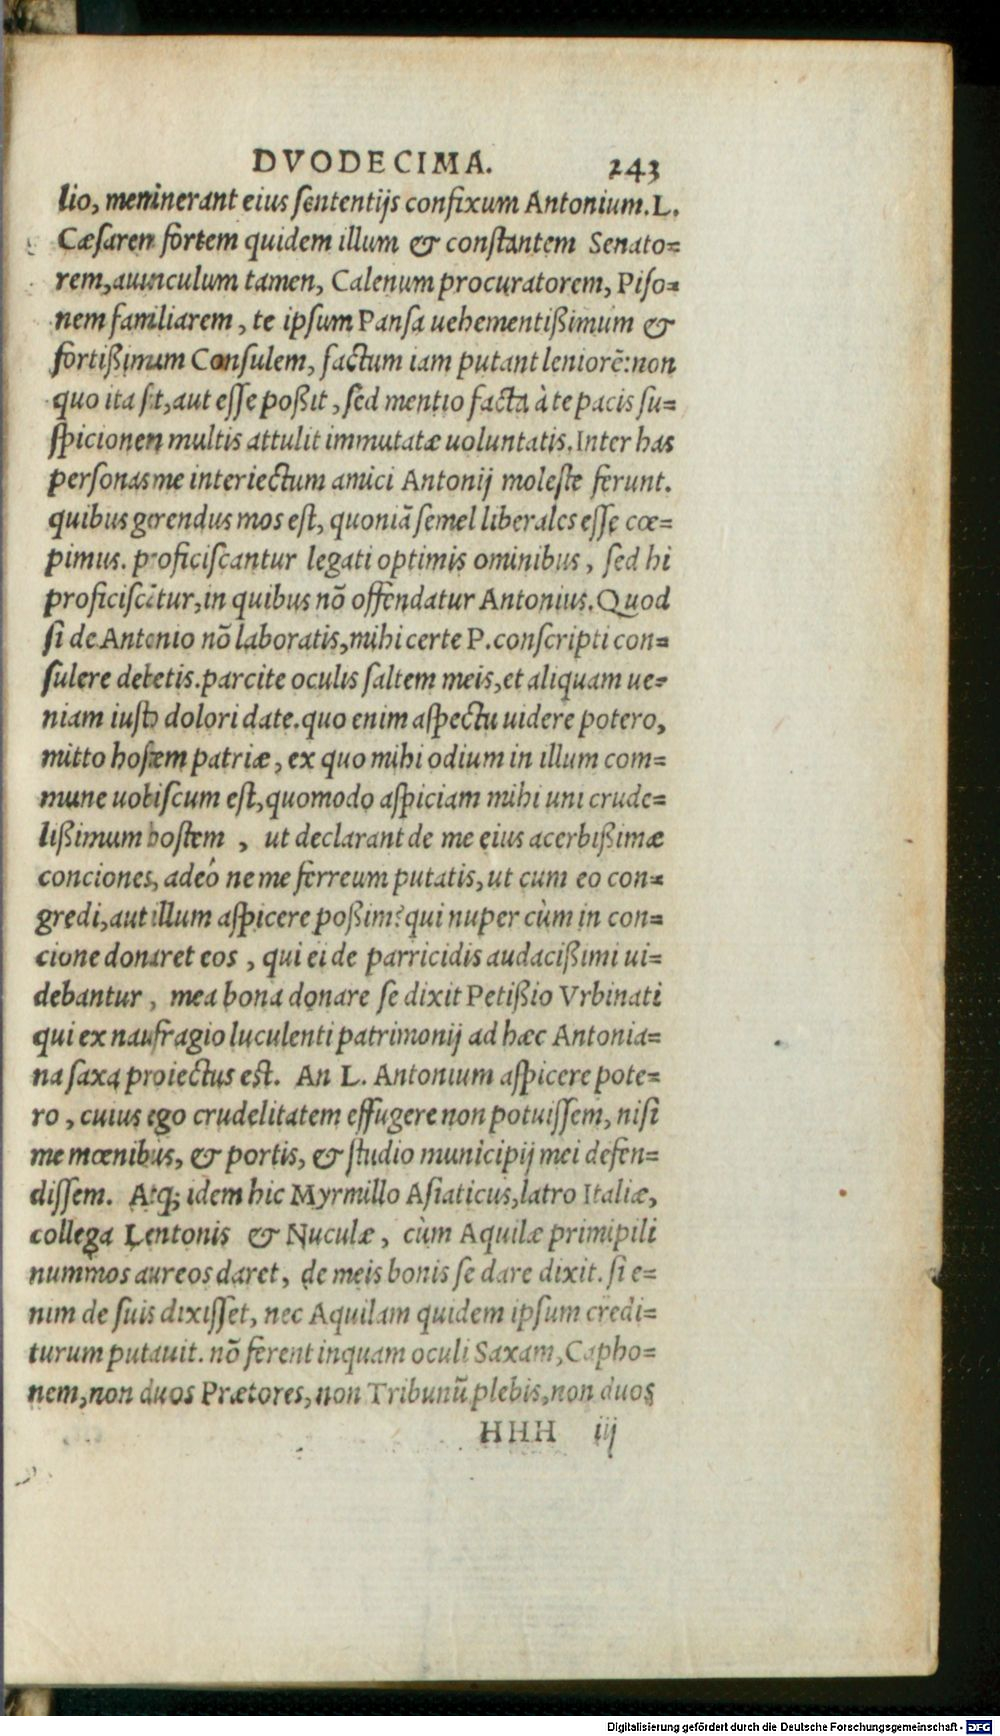 DVODECIMA. 243
lio, meminerant eius ſententijs confixum Antonium. L.
Cæſarem fortem quidem illum & conſtantem Senato=
rem, auunculum tamen, Calenum procuratorem, Piſo=
nem familiarem, te ipſum Panſa uehementißimum &
fortißimum Conſulem, factum iam putant leniorē: non
quo ita ſit, aut eſſe poßit, ſed mentio facta à te pacis ſu=
ſpicionem multis attulit immutatæ uoluntatis. Inter has
perſonas me interiectum amici Antonij moleſte ferunt.
quibus gerendus mos eſt, quoniā ſemel liberales eſſe cœ=
pimus. proficiſcantur legati optimis ominibus, ſed hi
proficiſcātur, in quibus nō offendatur Antonius. Quod
ſi de Antonio nō laboratis, mihi certe P. conſcripti con=
ſulere debetis. parcite oculis ſaltem meis, et aliquam ue=
niam iuſto dolori date. quo enim aſpectu uidere potero,
mitto hoſtem patriæ, ex quo mihi odium in illum com=
mune uobiſcum eſt, quomodo aſpiciam mihi uni crude=
lißimum hoſtem, ut declarant de me eius acerbißimæ
conciones, adeó ne me ferreum putatis, ut cum eo con=
gredi, aut illum aſpicere poßim? qui nuper cùm in con=
cione donaret eos, qui ei de parricidis audacißimi ui=
debantur, mea bona donare ſe dixit Petißio Vrbinati
qui ex naufragio luculenti patrimonij ad hæc Antonia=
na ſaxa proiectus est. An L. Antonium aſpicere pote=
ro, cuius ego crudelitatem effugere non potuiſſem, niſi
me mœnibus, & portis, & ſtudio municipij mei defen=
diſſem. Atq; idem hic Myrmillo Aſiaticus, latro Italiæ,
collega Lentonis & Nuculæ, cùm Aquilæ primipili
nummos aureos daret, de meis bonis ſe dare dixit. ſi e=
nim de ſuis dixiſſet, nec Aquilam quidem ipſum credi=
turum putauit. nō ferent inquam oculi Saxam, Capho=
nem, non duos Prætores, non Tribunū plebis, non duos
HHH iij
Digitalisierung gefördert durch die Deutsche Forschungsgemeinschaft - DFG